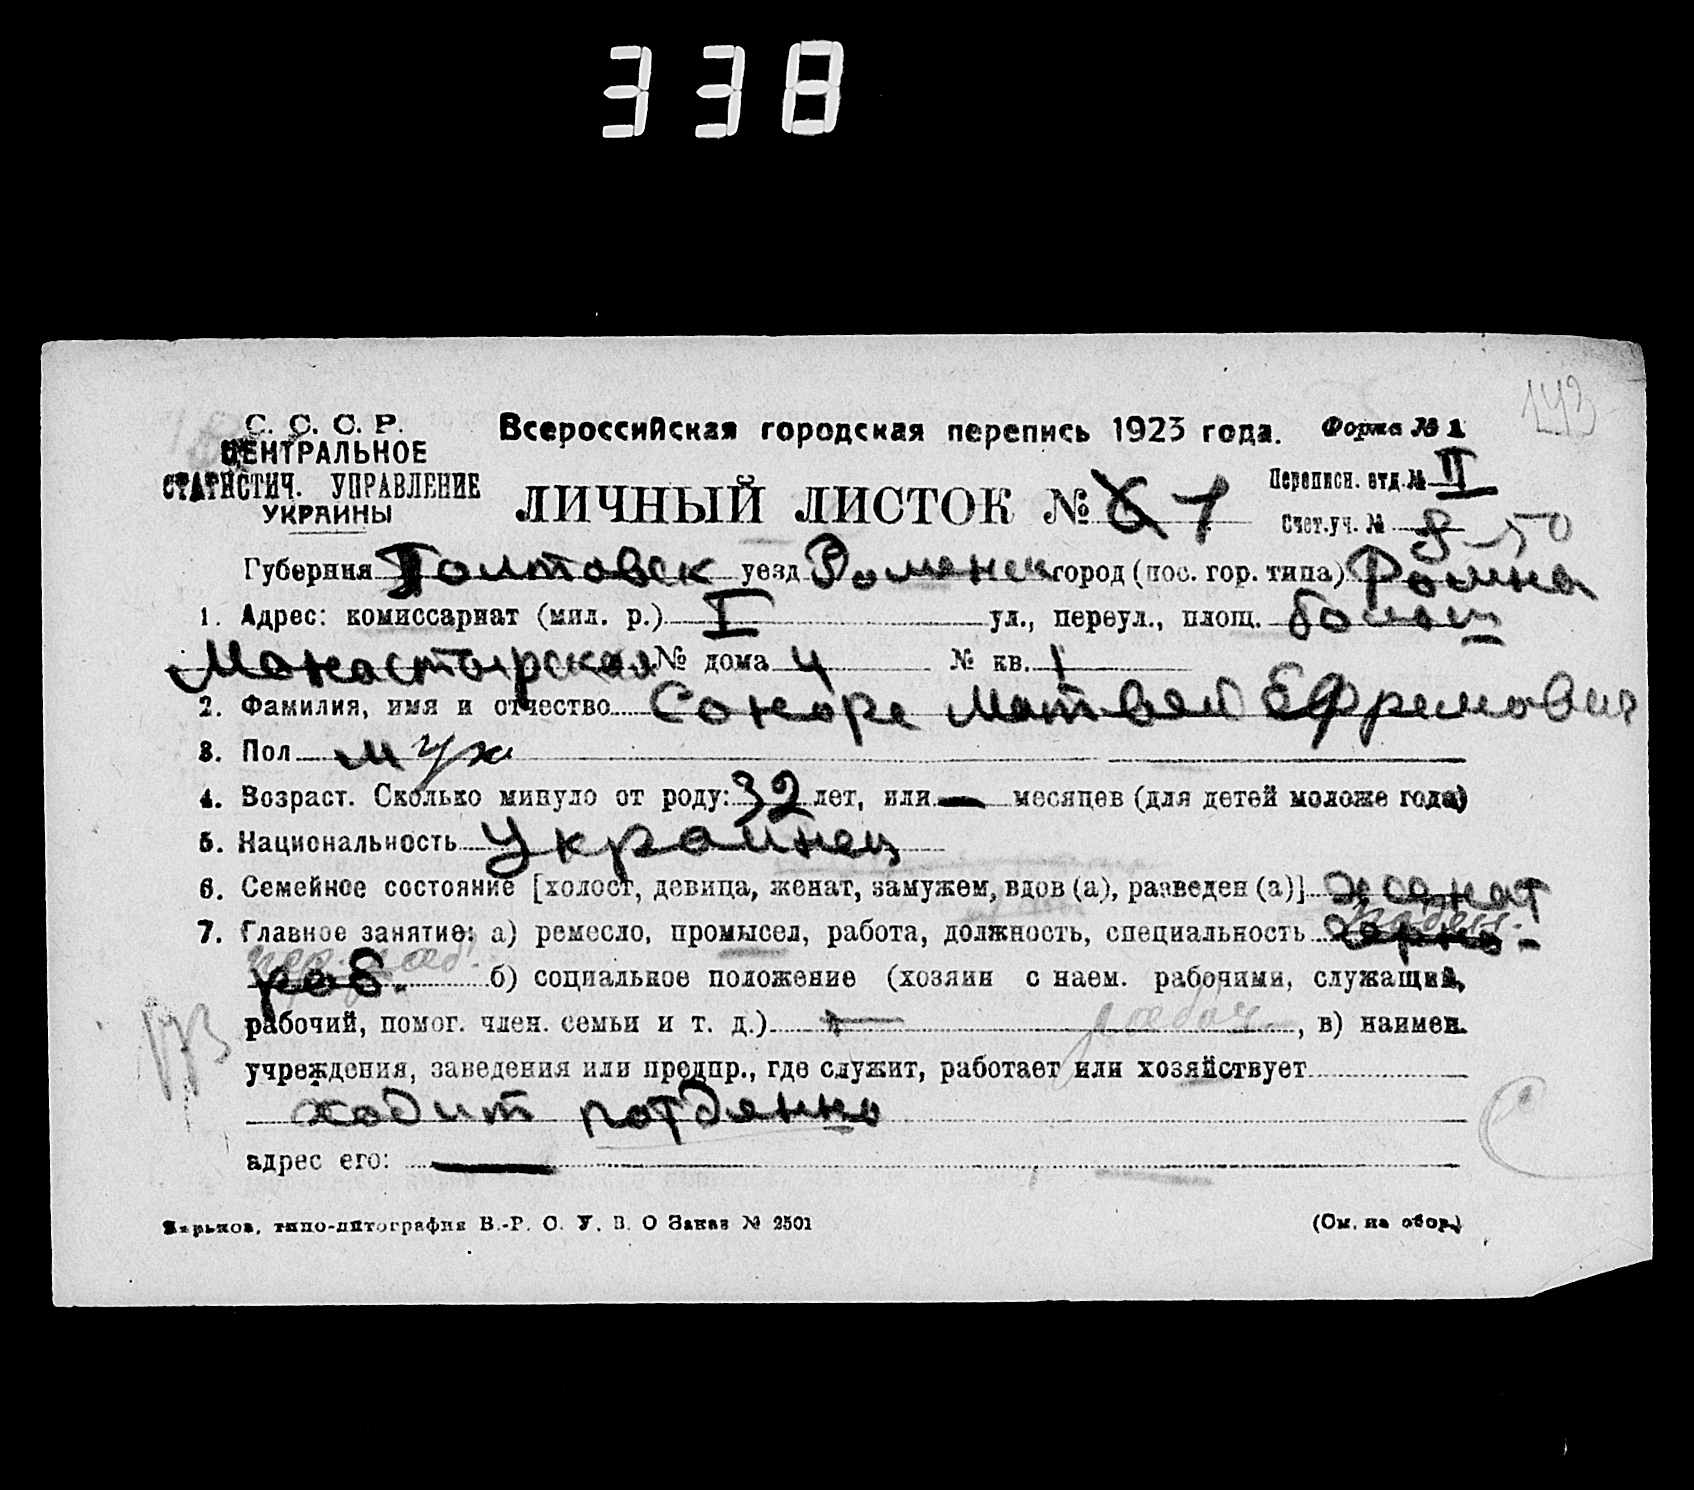 338
143
С. С. С. Р.
ЦЕНТРАЛЬНОЕ
СТАТИСТИЧ. УПРАВЛЕНИЕ
УКРАИНЫ
Всероссийская городская перепись 1923 года.
Форма № 1
ЛИЧНЫЙ ЛИСТОК № 6 1
Переписн. отд. № II
Счет. уч. № 8 - 50
Губерния Полтавск уезд Роменск город (пос. гор. типа) Ромна
1. Адрес: комиссариат (мил. р.) I ул., переул., площ.
Монастырская № дома 4 № кв. 1
2. Фамилия, имя и отчество Матвей Ефремович
3. Пол муж
4. Возраст. Сколько минуло от роду: 32 лет, или — месяцев (для детей моложе года)
5. Национальность Украинец
6. Семейное состояние [холост, девица, женат, замужем, вдов (а), разведен (а)] женат
7. Главное занятие: а) ремесло, промысел, работа, должность, специальность черно-
раб. б) социальное положение (хозяин с наем. рабочими, служащий,
рабочий, помог. член. семьи и т. д.) — рабоч. , в) наимен.
учреждения, заведения или предпр., где служит, работает или хозяйствует
ходит поденно
адрес его: —
Харьков, типо-литография В.-Р. О. У. В. О Заказ № 2501
(См. на обор.)